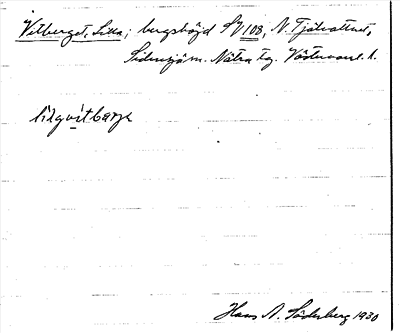 Vitberget, Lilla; bergshöjd SV 108, N. Tjälvattnet,
Sidensjö sn. Nätra tg. Västernorrl. l.
lilqvitbarje
Hans A. Söderberg 1930